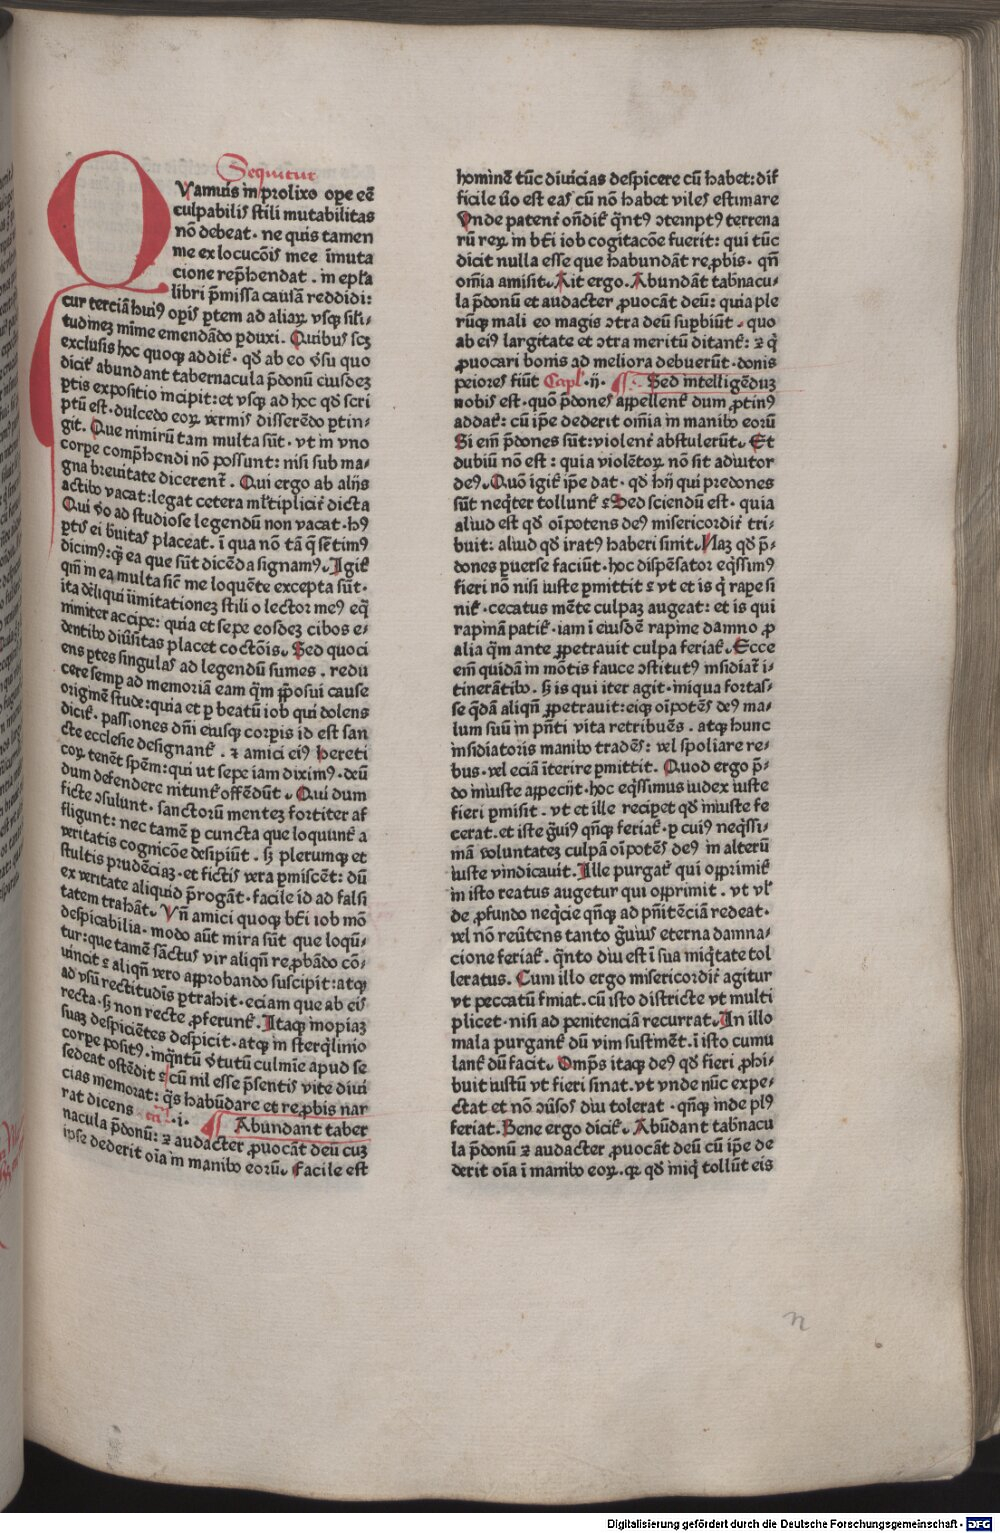 Sequitur
QVamuis in prolixo oꝑe eē
culpabilis stili mutabilitas
nō debeat · ne quis tamen
me ex locucōis mee īmuta
cione rep̄hendat . in epl̄a
libri p̄missa causā reddidi:
cur terciā huiꝰ oꝑis ꝑtem ad aliaꝝ vsqꝫ sil̄i⸗
tudinez mīme emendādo ꝑduxi. Quibus scꝫ
exclusis hoc quoqꝫ addit᷑ · qđ ab eo v̄su quo
dicit᷑ abundant tabernacula p̄donū eiusdez
ꝑtis expositio incipit: et vsqꝫ ad hoc qđ scri
ptū est · dulcedo eoꝝ vermis disserēdo ꝑtin⸗
git. Que nimirū tam multa sūt · vt in vno
corꝑe comp̄hendi nō possunt: nisi sub ma⸗
gna breuitate dicerent᷑ . Qui ergo ab alijs
actibꝰ vacat: legat cetera ml̄tiplicit᷑ dicta
Qui v̄o ad studiose legendū non vacat · hꝰ
ꝑtis ei b̄uitas placeat . ī qua nō tā q̄ sētimꝰ
dicimꝰ: qꝫ ea que sūt dicēda signamꝰ. Igit᷑
qm̄ in ea multa sic̄ me loquēte excepta sūt ·
ita deliqui īmitationez stili o lector meꝰ eq̄
nimiter accipe: quia et sepe eosdez cibos e⸗
dentibꝰ diu̇sitas placet coctōis. Sed quoci
ens ꝑtes singulas ad legendū sumes . redu
cere semꝑ ad memoriā eam q̄m ꝓposui cause
originē stude: quia et ꝑ beatū iob qui dolens
dicit᷑ · passiones dn̄i eiusqꝫ corꝑis id est san
cte ecclesie designant᷑ . ⁊ amici eiꝰ hereti
coꝝ tenēt spēm: qui ut sepe iam diximꝰ · deū
dum defendere nitunt᷑ offēdūt . Qui dum
ficte ↄsulunt · sanctorū mentez fortiter af
fligunt: nec tamē ꝑ cuncta que loquunt᷑ a
veritatis cognicōe desipiūt . sꝫ plerumqꝫ et
stultis prudēciaꝫ · et fictis vera ꝑmiscēt: dū
ex veritate aliquid p̄rogāt · facile id ad falsi
tatem trahāt . Vn̄ amici quoqꝫ bt̄i iob mō
despicabilia · modo aūt mira sūt que loqū⸗
tur: que tamē sāctus vir aliqn̄ reꝓbādo cō⸗
uincit ⁊ aliqn̄ vero approbando suscipit: atqꝫ
ad vsū rectitudīs ꝑtrahit · eciam que ab eis
recta · sꝫ non recte ꝓferunt᷑ . Itaqꝫ inopiaꝫ
suaꝫ despiciētes despicit · atqꝫ in sterq̇linio
corꝑe positꝰ · inq̄ntū v̄tutū culmīe apud se
sedeat ostēdit ⁊ cū nil esse p̄sentis vite diui
cias memorat: q̇s habūdare et reꝓbis nar
rat dicens · i · Abundant taber
nacula p̄donū: ⁊ audacter ꝓuocāt deū cuꝫ
ipse dederit oīa in manibꝰ eorū. Facile est
hominē tūc diuicias despicere cū habet: dif
ficile v̄o est eas cū nō habet viles estimare
Vnde patent᷑ ondit᷑ q̄ntꝰ ↄtemptꝰ terrena
rū reꝝ in bt̄i iob cogitacōe fuerit: qui tūc
dicit nulla esse que habundāt reꝓbis · qn̄
om̄ia amisit. Ait ergo. Abundāt tab̄nacu⸗
la p̄donū et audacter ꝓuocāt deū: quia ple
rūqꝫ mali eo magis ↄtra deū suꝑbiūt . quo
ab eiꝰ largitate et ↄtra meritū ditant᷑: ⁊ q̇
ꝓuocari bonis ad meliora debuerūt · donis
peiores fiūt Capl̄ · ii · Sed intelligēduꝫ
nobis est · quō p̄dones appellent᷑ dum ꝓtinꝰ
addat᷑: cū ip̄e dederit om̄ia in manibꝰ eorū
Si em̄ p̄dones sūt: violent᷑ abstulerūt. Et
dubiū nō est: quia violētoꝝ nō sit adiutor
deꝰ. Quō igit᷑ ip̄e dat · qđ hij qui predones
sūt neq̇ter tollunt ⁊ Sed sciendū est · quia
aliud est qđ oīpotens deꝰ misericordit᷑ tri⸗
buit: aliud qđ iratꝰ haberi sinit. Naꝫ qđ p̄⸗
dones ꝑuerse faciūt · hoc dispēsator eq̇ssimꝰ
fieri nō nisi iuste ꝑmittit ⁊ vt et is q̇ rape si
nit᷑ · cecatus mēte culpaꝫ augeat: et is qui
rapinā patit᷑ · iam ī eiusdē rapine damno ꝓ
alia q̄m ante ꝑpetrauit culpa feriat᷑. Ecce
em̄ quidā in mōtis fauce ↄstitutꝰ insidiat᷑ i⸗
tinerātibꝰ. sꝫ is qui iter agit · iniqua fortas⸗
se q̄dā aliqn̄ ꝑpetrauit: eiqꝫ oīpotēs deꝰ ma⸗
lum suū in pn̄ti vita retribuēs . atqꝫ hunc
insidiatoris manibꝰ tradēs: vel spoliare re⸗
bus · vel eciā īterire ꝑmittit. Quod ergo p̄⸗
do iniuste appecijt · hoc eq̇ssimus iudex iuste
fieri ꝑmisit . vt et ille reciꝑet qđ iniuste fe
cerat. et iste g̃uiꝰ qn̄qꝫ feriat᷑ · ꝑ cuiꝰ neq̇ssi⸗
mā voluntateꝫ culpā oīpotēs deꝰ in alterū
iuste vindicauit. Ille purgat᷑ qui opprimit᷑
in isto reatus augetur qui opprimit . vt vl̄
de ꝓfundo neq̇cie qn̄qꝫ ad pn̄itēciā redeat ·
vel nō reu̇tens tanto g̃uius eterna damna⸗
cione feriat᷑. q̄nto diu est ī sua iniq̇tate tol
leratus. Cum illo ergo misericordit᷑ agitur
vt peccatū f̄miat. cū isto districte vt multi
plicet · nisi ad penitenciā recurrat. In illo
mala purgant᷑ dū vim sustinēt. ī isto cumu
lant᷑ dū facit. Omp̄s itaqꝫ deꝰ qđ fieri ꝓhi⸗
buit iustū vt fieri sinat. vt vnde nūc expe⸗
ctat et nō ↄu̇sos diu tolerat · qn̄qꝫ inde plꝰ
feriat. Bene ergo dicit᷑. Abūdant tab̄nacu
la p̄donū ⁊ audacter ꝓuocāt deū cū ip̄e de
derit oīa ī manibꝰ eoꝝ. qꝛ qđ iniq̇ tollūt eis
n
Digitalisierung gefördert durch die Deutsche Forschungsgemeinschaft - DFG